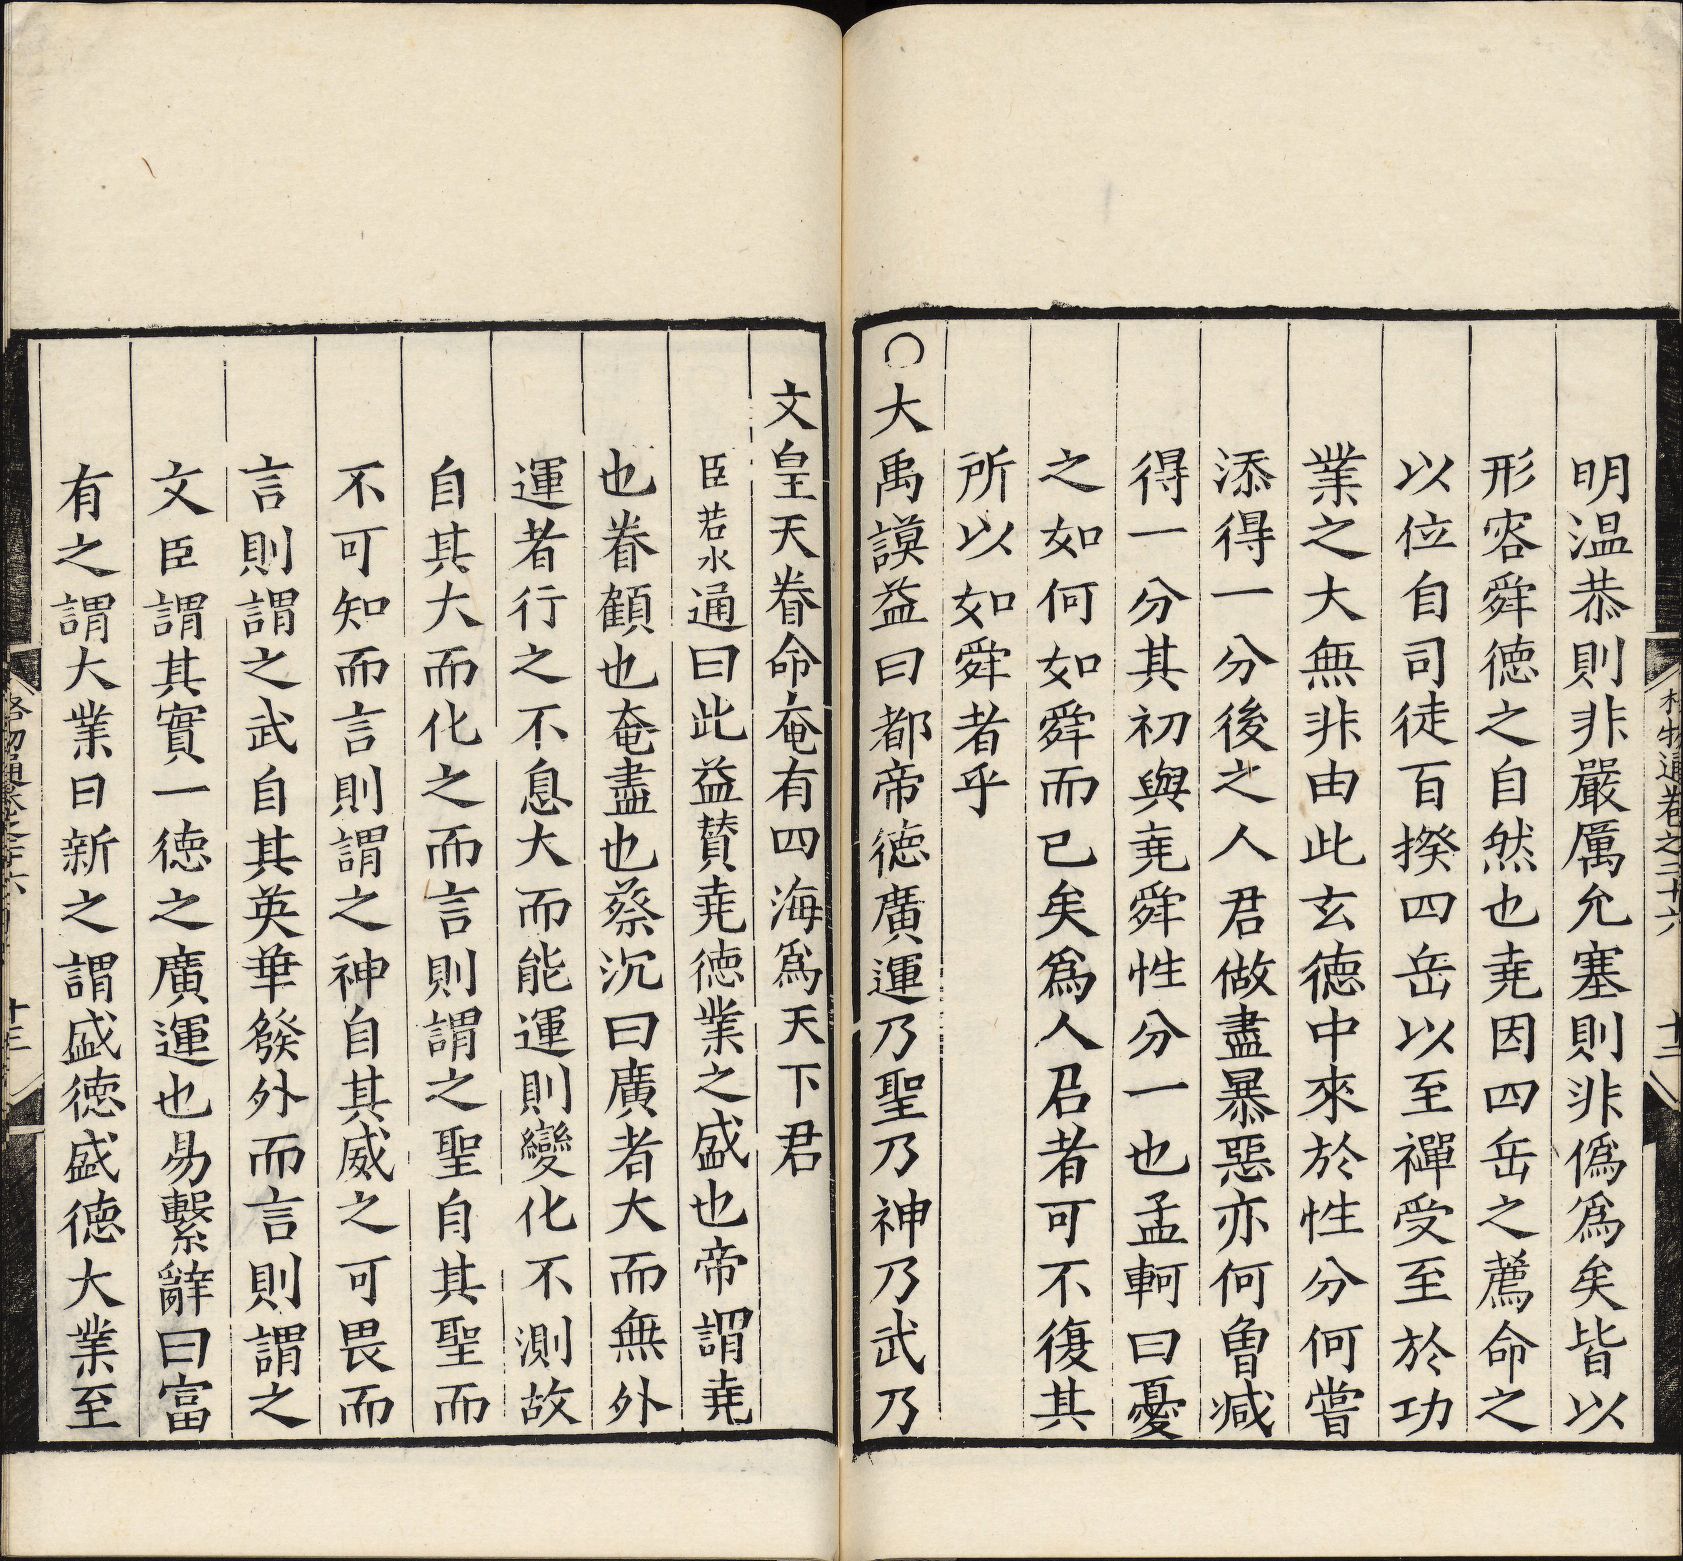 格物通卷之二十六
十二
明温恭則非嚴厲允塞則非偽爲矣皆以
形容舜德之自然也堯因四岳之薦命之
以位自司徒百揆四岳以至禪受至於功
業之大無非由此玄德中來於性分何嘗
添得一分後之人君做盡暴惡亦何曾减
得一分其初與堯舜性分一也孟軻曰憂
之如何如舜而已矣爲人君者可不復其
所以如舜者乎
〇大禹謨益曰都帝德廣運乃聖乃神乃武乃
文皇天眷命奄有四海爲天下君
臣若水通曰此益贊堯德業之盛也帝謂堯
也眷顧也奄盡也蔡沉曰廣者大而無外
運者行之不息大而能運則變化不測故
自其大而化之而言則謂之聖自其聖而
不可知而言則謂之神自其威之可畏而
言則謂之武自其英華發外而言則謂之
文臣謂其實一德之廣運也易繫辭曰富
有之謂大業日新之謂盛德盛德大業至
十三